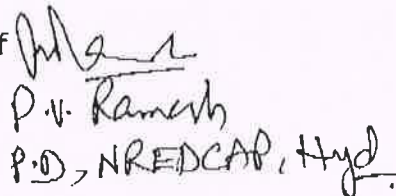 f
P.V. Ramesh
P.D, NREDCAP, Hyd.